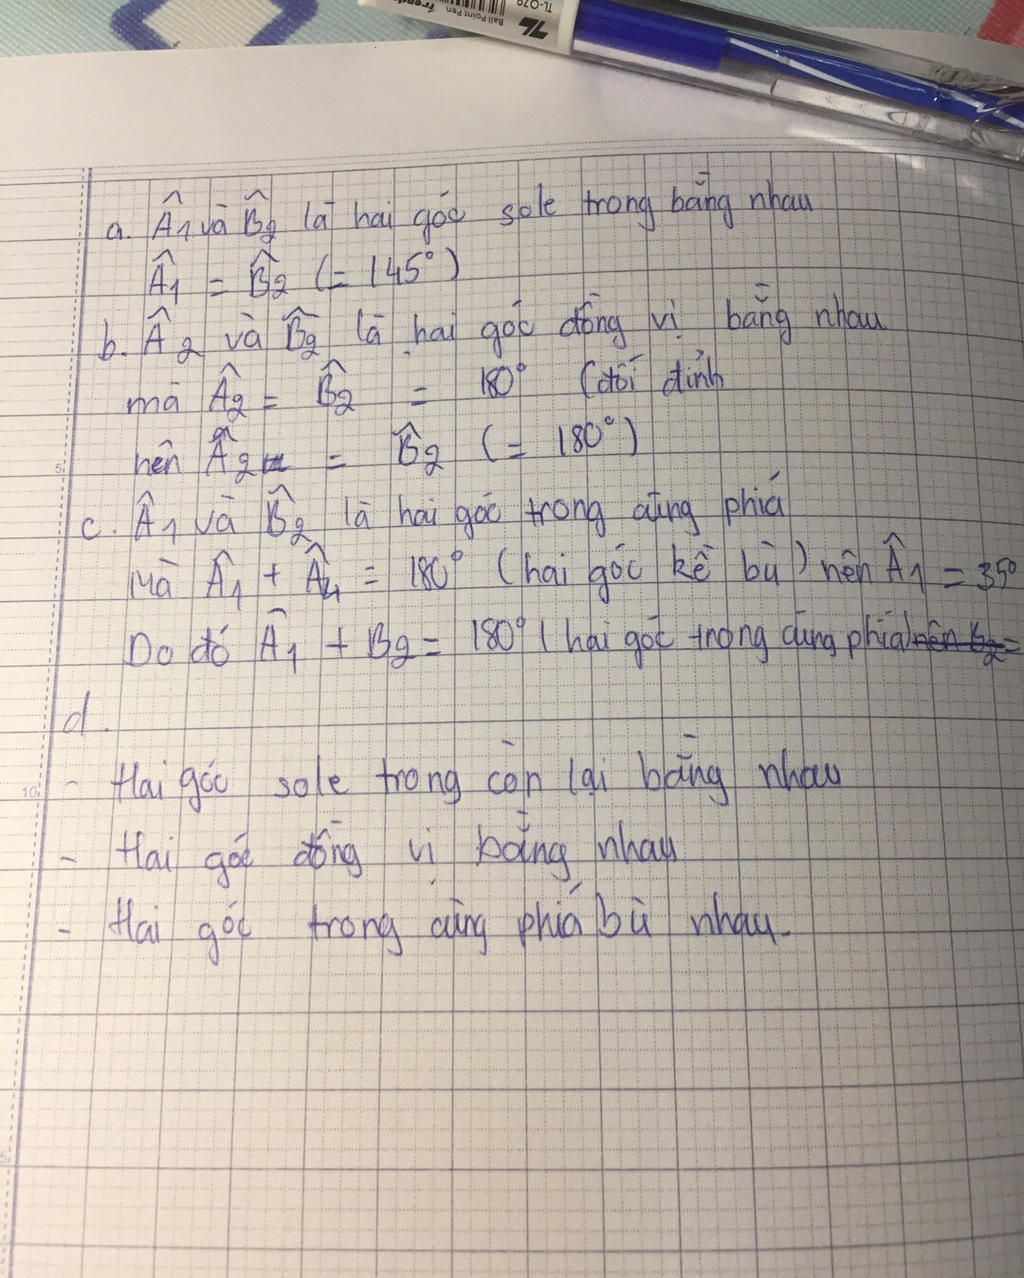 TL-079
Ball Point Pen
TL
a. Â1 và B̂2 là hai góc sole trong bằng nhau
Â1 = B̂2 (= 145°)
b. Â2 và B̂2 là hai góc đồng vị bằng nhau
mà Â2 = B̂2 = 180° (đối đỉnh
nên Â2 = B̂2 (= 180°)
5
c. Â1 và B̂2 là hai góc trong cùng phía
Mà Â1 + Â4 = 180° (hai góc kề bù) nên Â1 = 35°
Do đó Â1 + B2 = 180° (hai góc trong cùng phía) nên B2 =
d.
10
- Hai góc sole trong còn lại bằng nhau
- Hai góc đồng vị bằng nhau
- Hai góc trong cùng phía bù nhau.